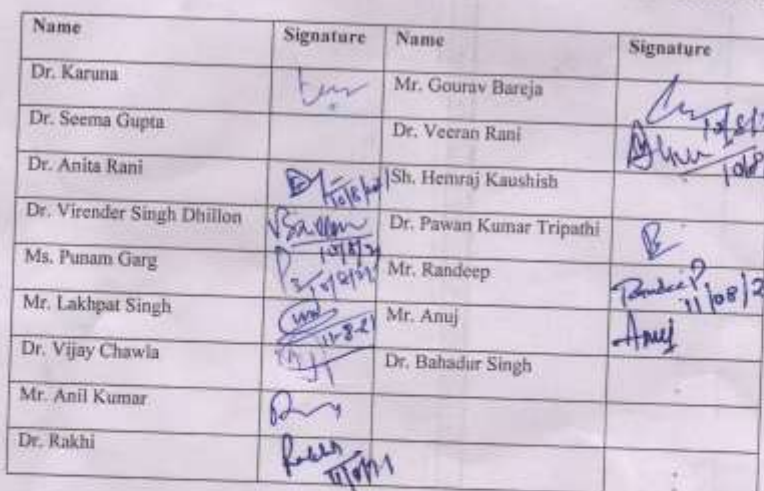 Name Signature Name Signature
Dr. Karuna Mr. Gourav Bareja
Dr. Seema Gupta Dr. Veeran Rani 10/8/
Dr. Anita Rani 10/8/ Sh. Hemraj Kaushish
Dr. Virender Singh Dhillon Dr. Pawan Kumar Tripathi
Ms. Punam Garg Mr. Randeep Randeep 11/08/2
Mr. Lakhpat Singh 11-8-21 Mr. Anuj Anuj
Dr. Vijay Chawla Dr. Bahadur Singh
Mr. Anil Kumar
Dr. Rakhi